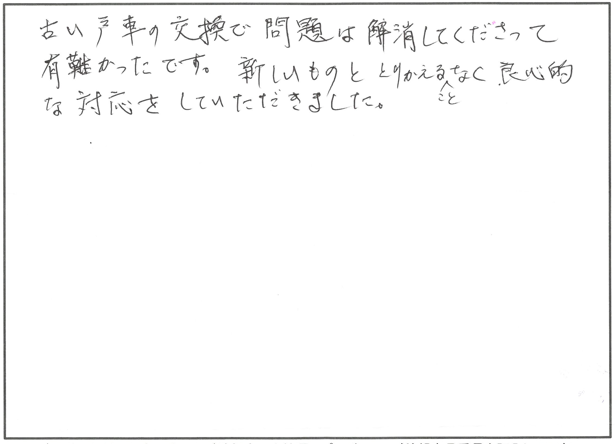 古い戸車の交換で問題は解消してくださって
有難かったです。新しいものととりかえることなく良心的
な対応をしていただきました。